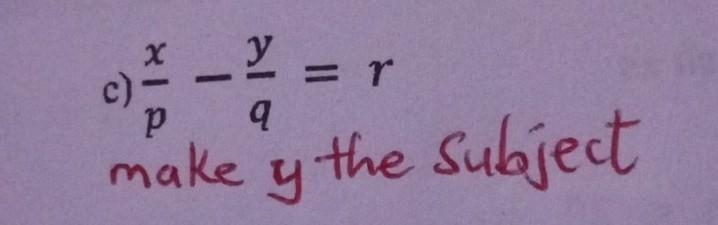 c) x/p − y/q = r
make y the subject